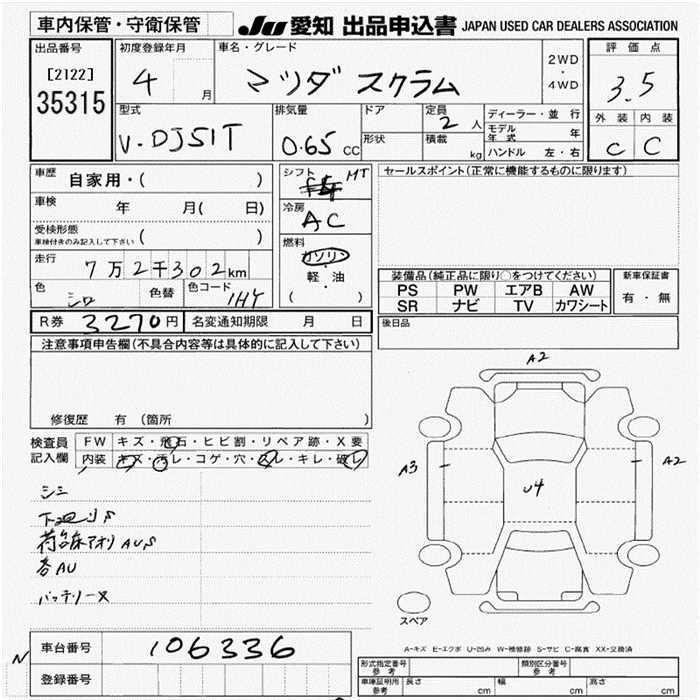 車内保管・守衛保管
JU 愛知 出品申込書 JAPAN USED CAR DEALERS ASSOCIATION
出品番号
[2122]
35315
初度登録年月
4 月
車名・グレード
マツダ スクラム
2WD
・
4WD
評価点
3.5
外装 内装
C C
型式
V-DJ51T
排気量
0.65 CC
ドア
形状
定員
2 人
積載
kg
ディーラー・並 行
モデル年式 年
ハンドル 左・右
車歴 自家用・( )
車検 年 月( 日)
受検形態
車検付きのみ記入して下さい ( )
走行 7万2千302km
色 シロ 色替 色コード 1HY
シフト MT
冷房
AC
燃料
ガソリン
軽・油
( )
セールスポイント(正常に機能するものに限ります)
装備品(純正品に限り○をつけてください)
PS PW エアB AW
SR ナビ TV カワシート
新車保証書
有・無
R券 3270円 名変通知期限 月 日
後日品
注意事項申告欄(不具合内容等は具体的に記入して下さい)
修復歴 有 (箇所 )
検査員記入欄
FW キズ・飛石・ヒビ割・リペア跡・X要
内装 キズ・汚レ・コゲ・穴・スレ・キレ・破レ
シミ
下廻りS
荷台床アオリAUS
各AU
バッテリーヌ
A2
A3
U4
A2
スペア
A-キズ E-エクボ U-凹み W-補修跡 S-サビ C-腐食 XX-交換済
N
車台番号 106336
登録番号
形式指定番号 参考
類別区分番号 参考
車庫証明用 参考 長さ cm 幅 cm 高さ cm